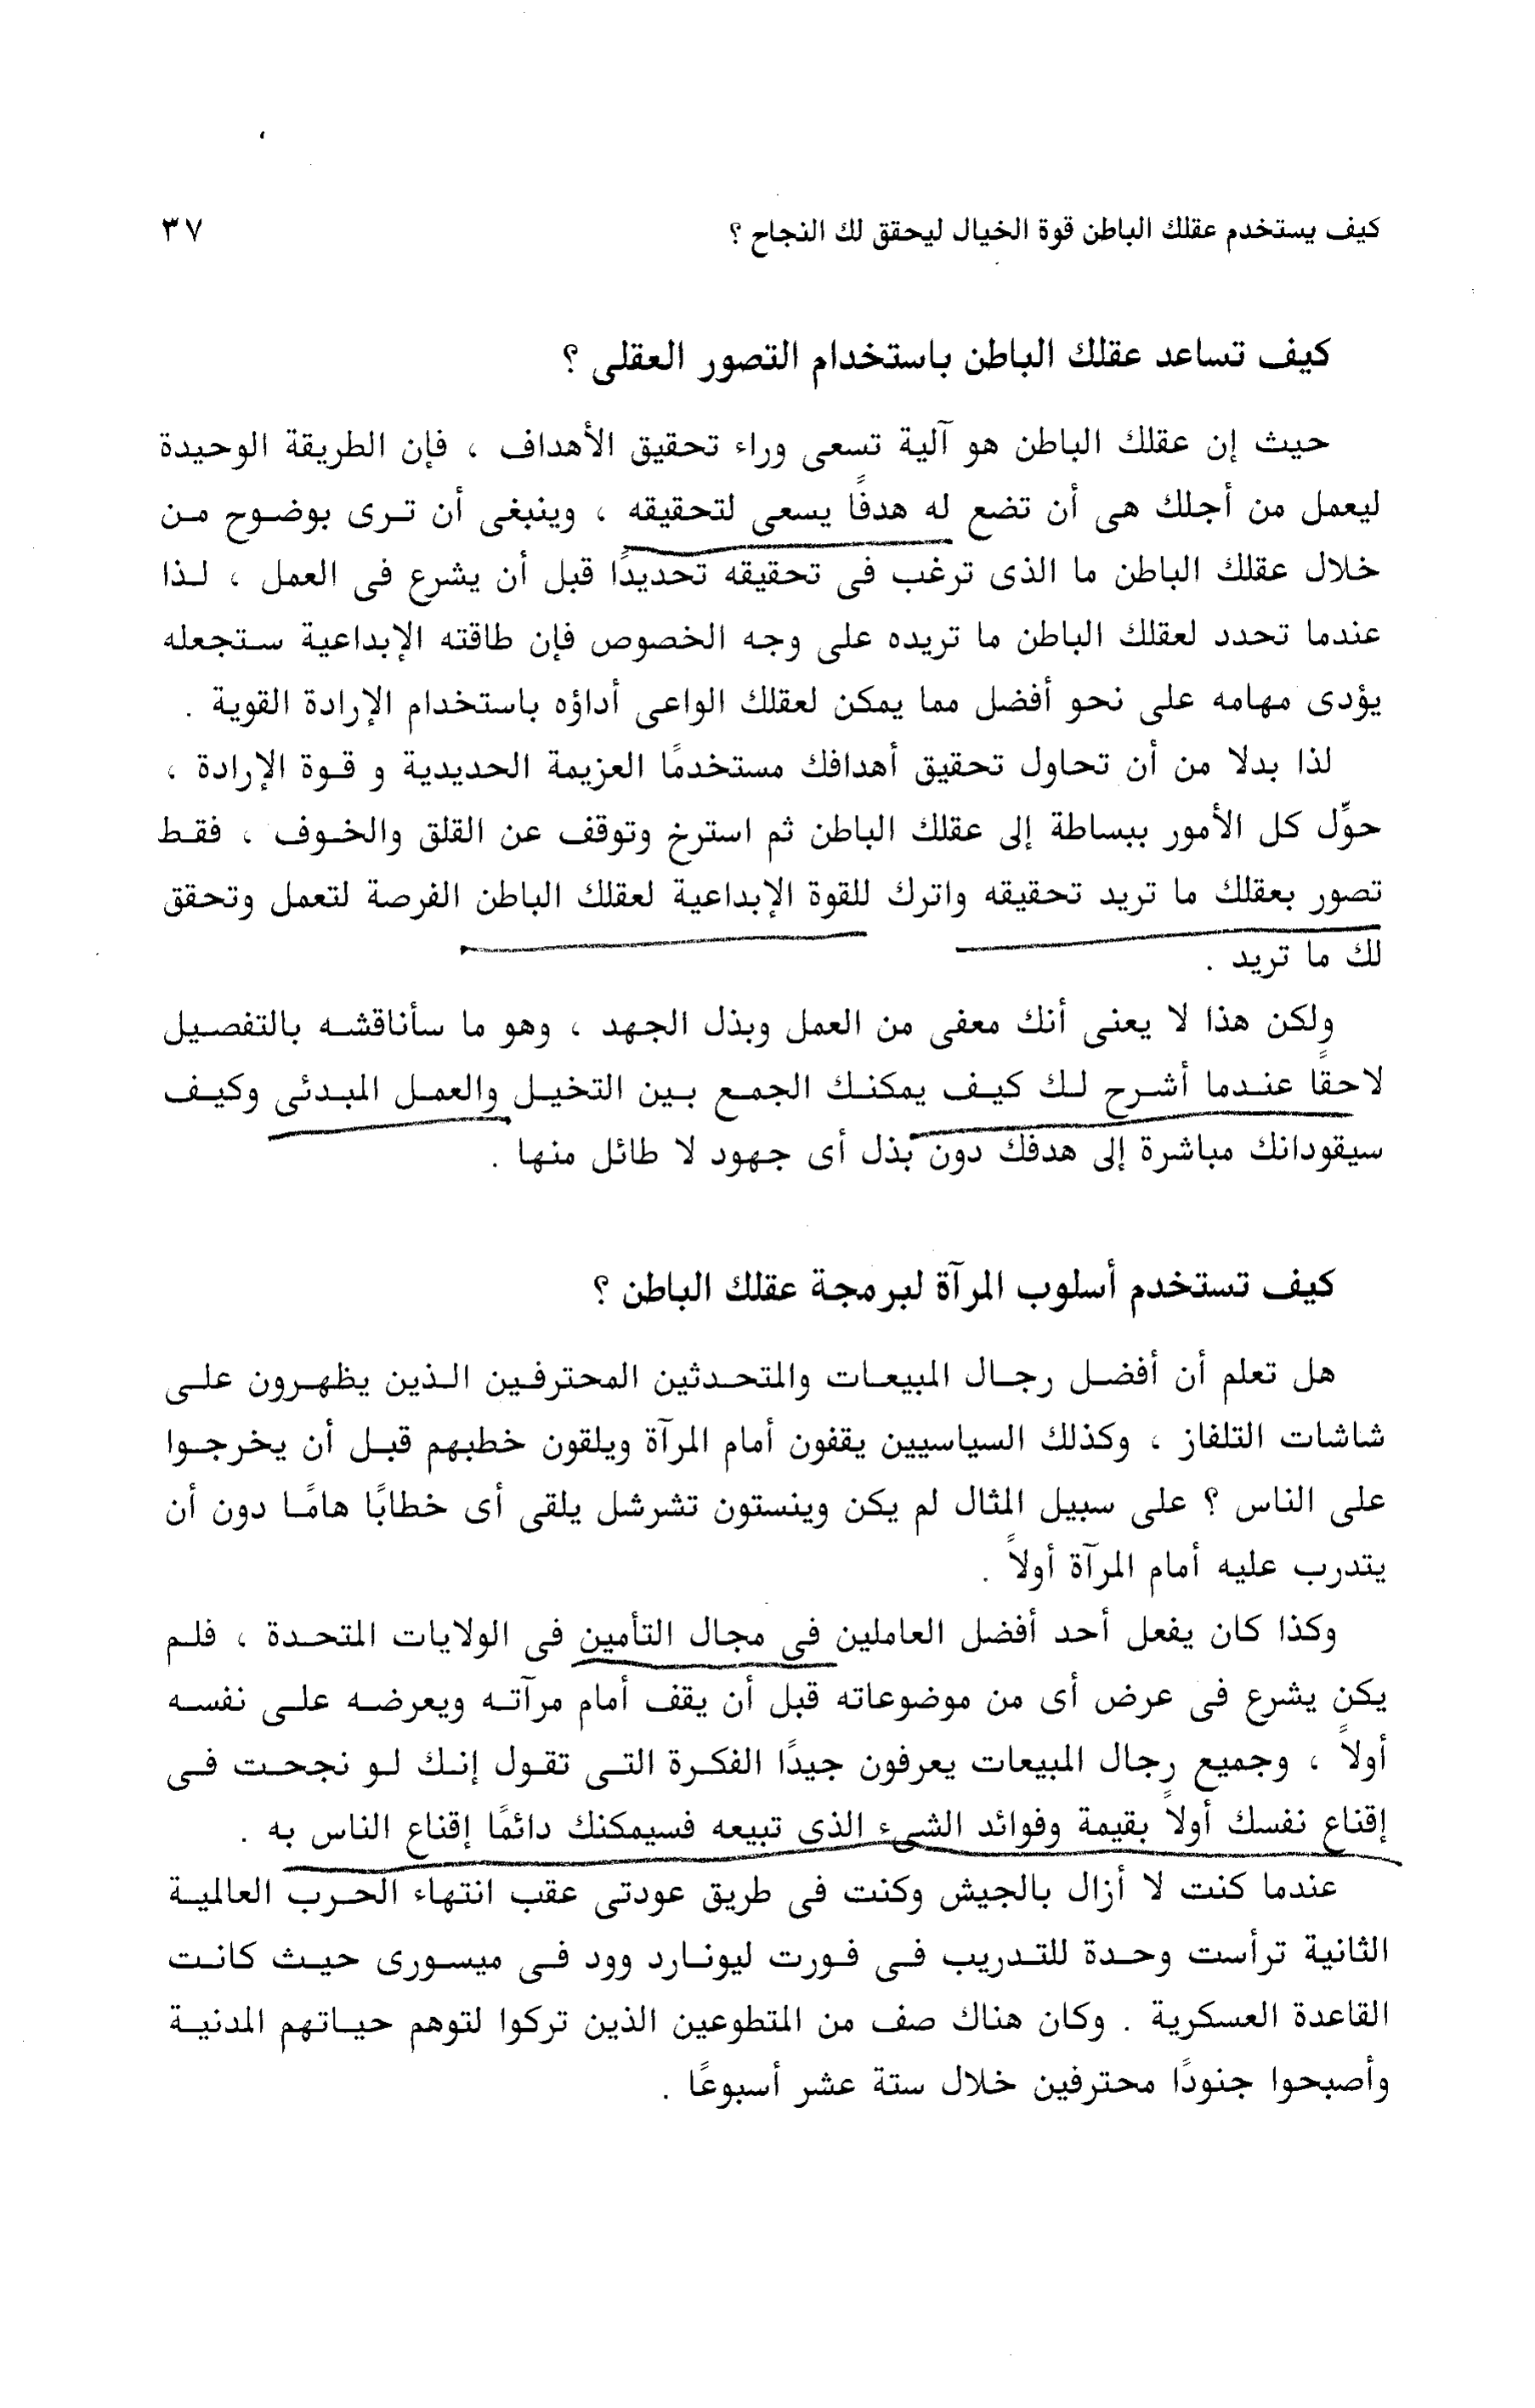 كيف يستخدم عقلك الباطن قوة الخيال ليحقق لك النجاح ؟ ٣٧
كيف تساعد عقلك الباطن باستخدام التصور العقلى ؟
حيث إن عقلك الباطن هو آلية تسعى وراء تحقيق الأهداف ، فإن الطريقة الوحيدة
ليعمل من أجلك هى أن تضع له هدفًا يسعى لتحقيقه ، وينبغى أن ترى بوضوح من
خلال عقلك الباطن ما الذى ترغب فى تحقيقه تحديدًا قبل أن يشرع فى العمل ، لذا
عندما تحدد لعقلك الباطن ما تريده على وجه الخصوص فإن طاقته الإبداعية ستجعله
يؤدى مهامه على نحو أفضل مما يمكن لعقلك الواعى أداؤه باستخدام الإرادة القوية .
لذا بدلا من أن تحاول تحقيق أهدافك مستخدمًا العزيمة الحديدية و قوة الإرادة ،
حوِّل كل الأمور ببساطة إلى عقلك الباطن ثم استرخ وتوقف عن القلق والخوف ، فقط
تصور بعقلك ما تريد تحقيقه واترك للقوة الإبداعية لعقلك الباطن الفرصة لتعمل وتحقق
لك ما تريد .
ولكن هذا لا يعنى أنك معفى من العمل وبذل الجهد ، وهو ما سأناقشه بالتفصيل
لاحقًا عندما أشرح لك كيف يمكنك الجمع بين التخيل والعمل المبدئى وكيف
سيقودانك مباشرة إلى هدفك دون بذل أى جهود لا طائل منها .
كيف تستخدم أسلوب المرآة لبرمجة عقلك الباطن ؟
هل تعلم أن أفضل رجال المبيعات والمتحدثين المحترفين الذين يظهرون على
شاشات التلفاز ، وكذلك السياسيين يقفون أمام المرآة ويلقون خطبهم قبل أن يخرجوا
على الناس ؟ على سبيل المثال لم يكن وينستون تشرشل يلقى أى خطابًا هامًا دون أن
يتدرب عليه أمام المرآة أولاً .
وكذا كان يفعل أحد أفضل العاملين فى مجال التأمين فى الولايات المتحدة ، فلم
يكن يشرع فى عرض أى من موضوعاته قبل أن يقف أمام مرآته ويعرضه على نفسه
أولاً ، وجميع رجال المبيعات يعرفون جيدًا الفكرة التى تقول إنك لو نجحت فى
إقناع نفسك أولاً بقيمة وفوائد الشىء الذى تبيعه فسيمكنك دائمًا إقناع الناس به .
عندما كنت لا أزال بالجيش وكنت فى طريق عودتى عقب انتهاء الحرب العالمية
الثانية ترأست وحدة للتدريب فى فورت ليونارد وود فى ميسورى حيث كانت
القاعدة العسكرية . وكان هناك صف من المتطوعين الذين تركوا لتوهم حياتهم المدنية
وأصبحوا جنودًا محترفين خلال ستة عشر أسبوعًا .